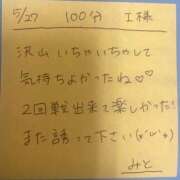 5/27 100分 I様
沢山いちゃいちゃして
気持ちよかったね♡♡
2回戦出来て楽しかった!
また誘って下さい(*'∪'*)
みと